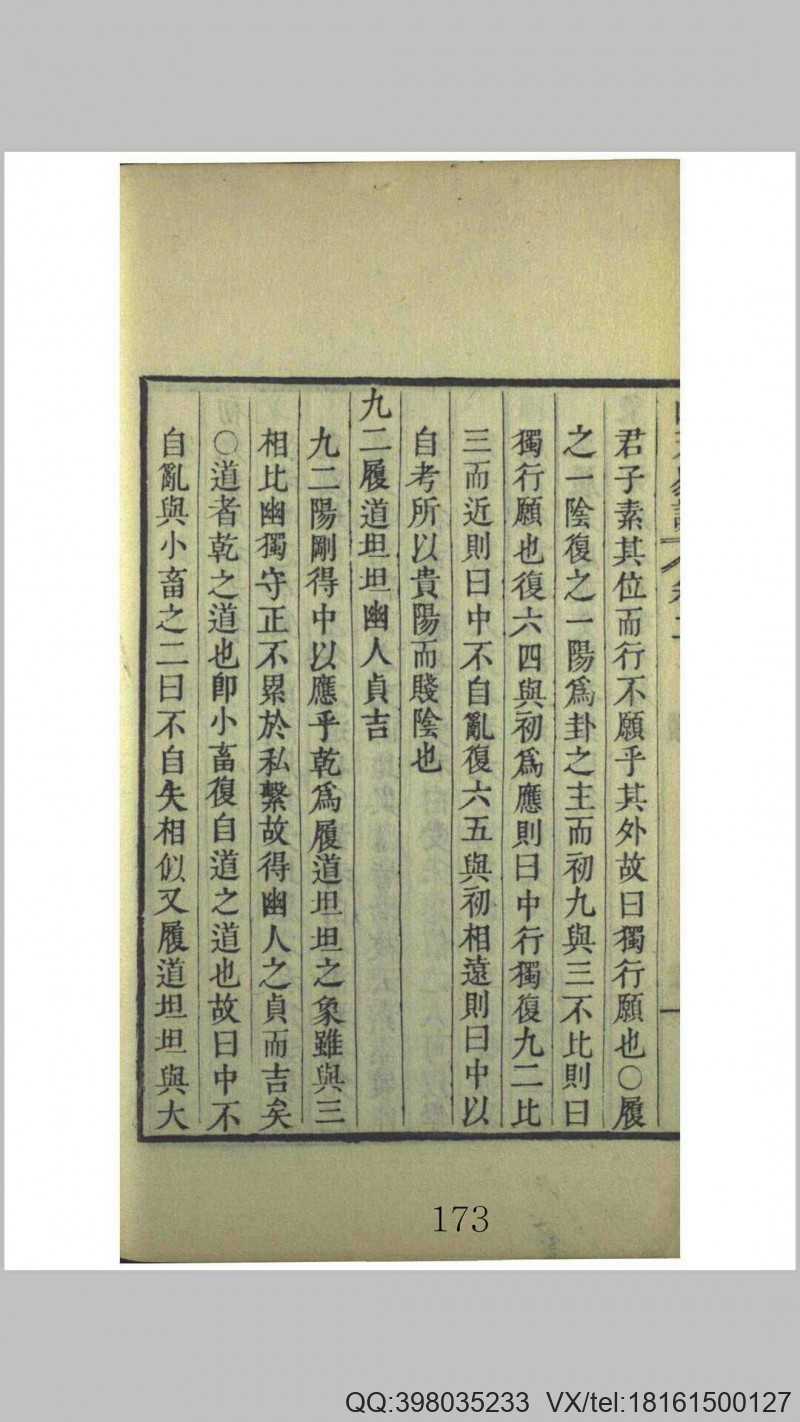 君子素其位而行不願乎其外故曰獨行願也○履
之一陰復之一陽爲卦之主而初九與三不比則曰
獨行願也復六四與初爲應則曰中行獨復九二比
三而近則曰中不自亂復六五與初相遠則曰中以
自考所以貴陽而賤陰也
九二履道坦坦幽人貞吉
九二陽剛得中以應乎乾爲履道坦坦之象雖與三
相比幽獨守正不累於私繫故得幽人之貞而吉矣
○道者乾之道也卽小畜復自道之道也故曰中不
自亂與小畜之二曰不自失相似又履道坦坦與大
173
QQ:398035233 VX/tel:18161500127